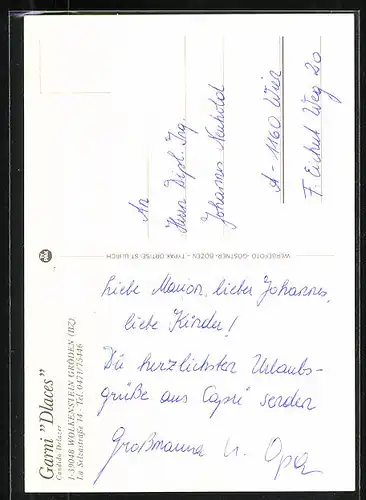 Garni "Dlaces"
Candido Delazer
I-39048 WOLKENSTEIN GRÖDEN (BZ)
La Selvastraße 14 - Tel. 0471/75446
WERBEFOTO GOSTNER-BOZEN - TYPAK ORTISEI ST. ULRICH
Liebe Marion, lieber Johannes,
liebe Kinder!
Die herzlichsten Urlaubs-
grüße aus Capri senden
Großmama u. Opa
An
Herrn Dipl. Ing.
Johannes
A - 1160 Wien
F. Eichert Weg 20